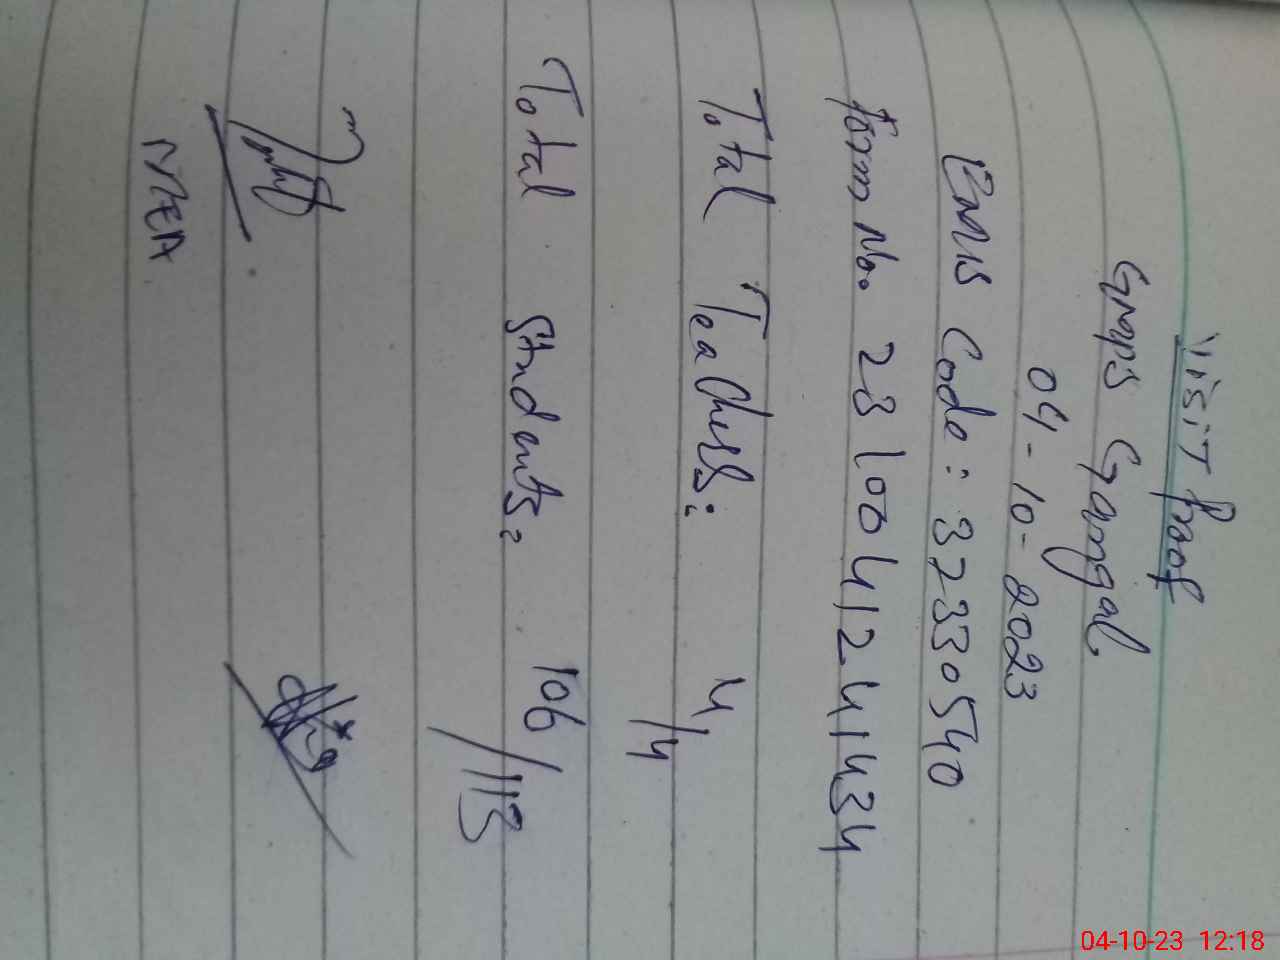 Visit Proof
GMPS Gangal
04-10-2023
EMIS Code: 37330540
form No. 231004124143​4
Total Teachers: 4/4
Total Students: 106/113
MEA
04-10-23 12:18